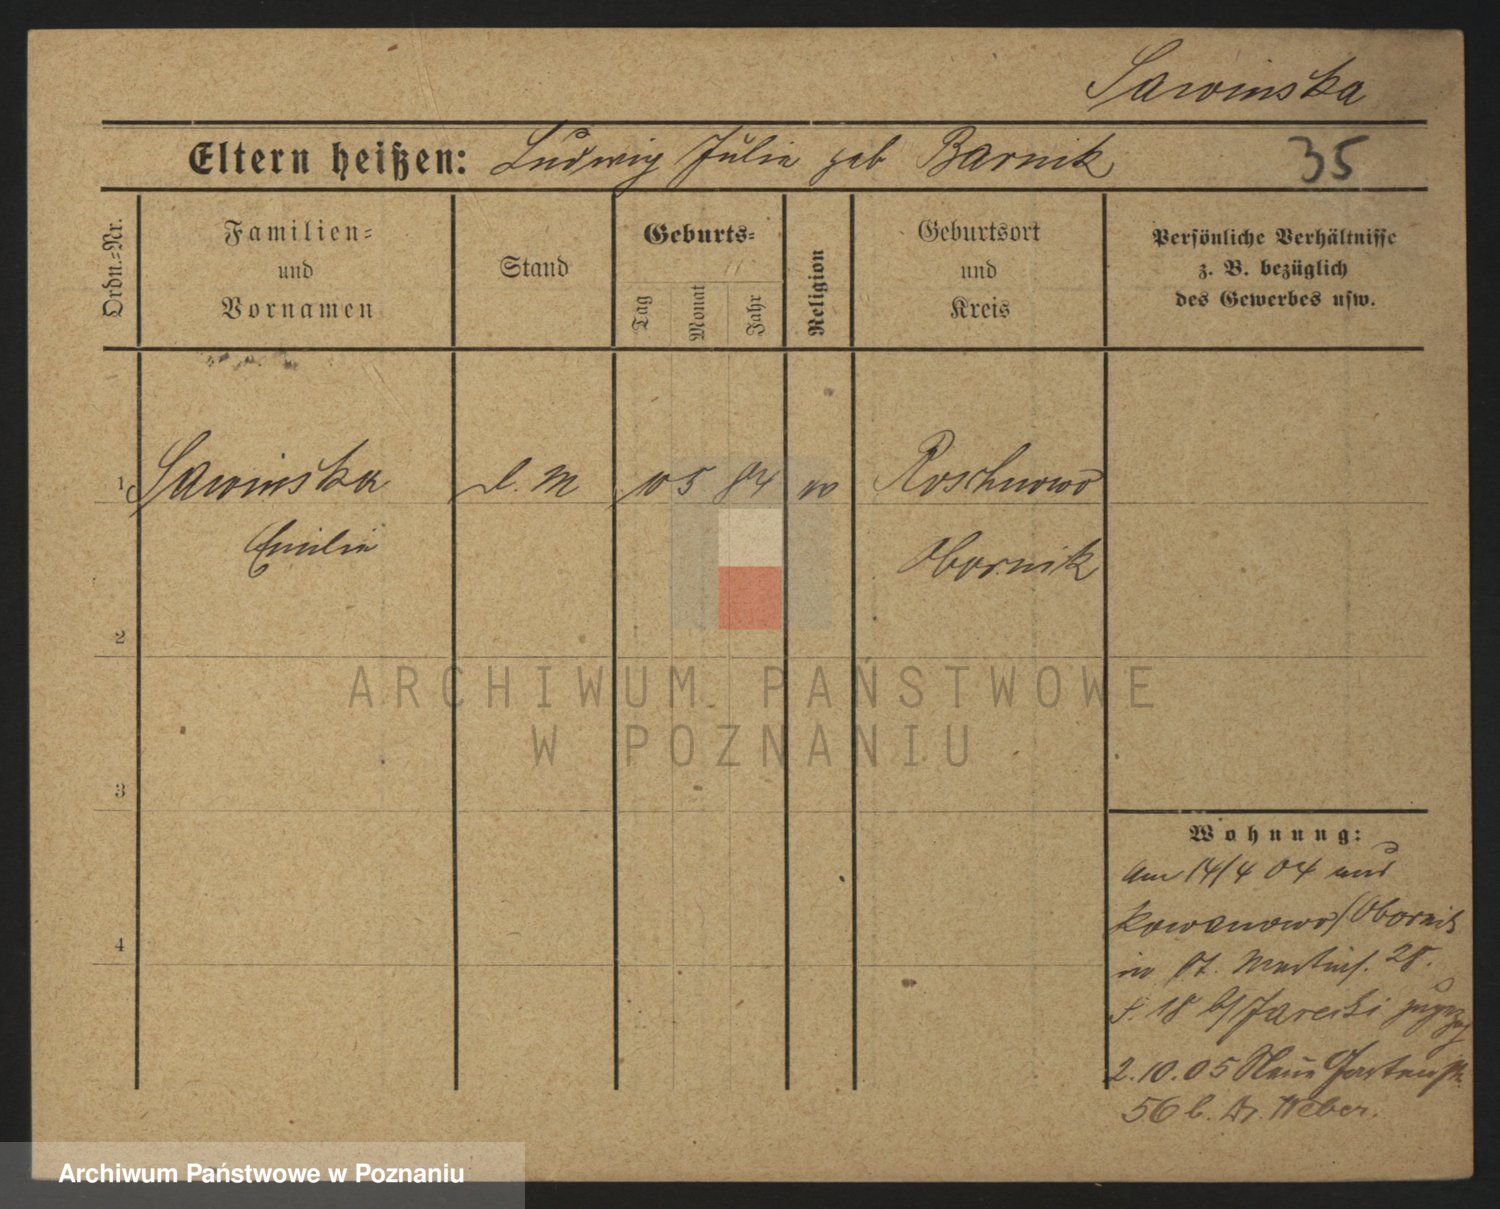 Sawinska
Eltern heißen: Ludwig Julie geb Barnik
35
Ordn.-Nr.
Familien-
und
Vornamen
Stand
Geburts-
Tag
Monat
Jahr
Religion
Geburtsort
und
Kreis
Persönliche Verhältnisse
z. B. bezüglich
des Gewerbes usw.
1 Sawinska d. M 10 5 84 Roschnowo
Emilie Obornik
2
ARCHIWUM PAŃSTWOWE
W POZNANIU
3
Wohnung:
am 14/4 04 aus
Kowanowo/Obornik
in St. Martinst. 28.
18 b/Jarecki zugezog
2.10.05 Neue Gartenstr.
56 b. Dr. Weber.
4
Archiwum Państwowe w Poznaniu